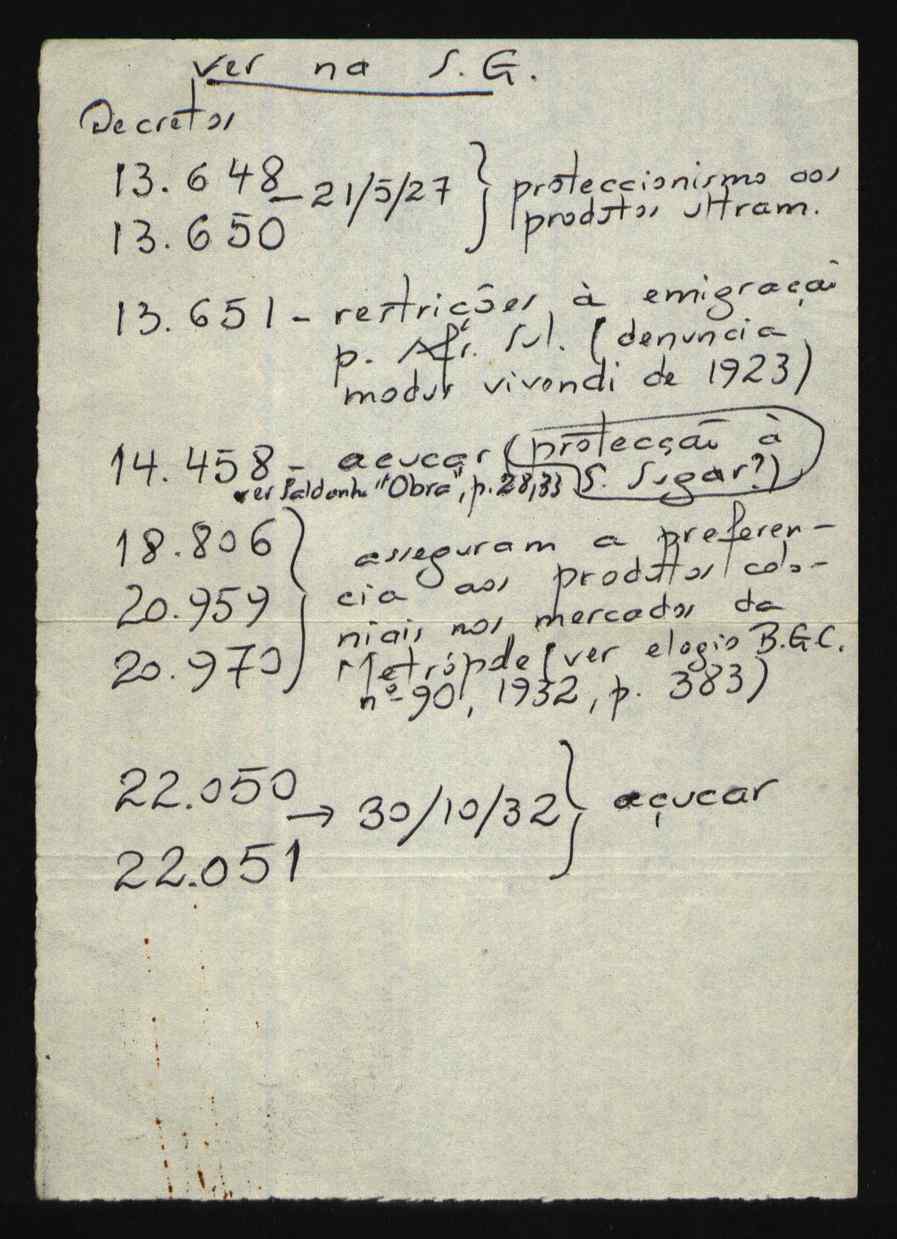 ver na S.G.
Decretos
13.648 – 21/5/27 } proteccionismo aos
13.650 produtos ultram.
13.651 – restrições à emigração
p. Áfr. Sul. (denuncia
modus vivendi de 1923)
14.458 – açucar (protecção à
S. Sugar?)
ver Saldanha "Obra", p. 28,33
18.806 } asseguram a preferen-
20.959 cia aos produtos colo-
20.970 niais nos mercados da
Metrópole (ver elogio B.G.C.
nº 90, 1932, p. 383)
22.050 → 30/10/32 } açucar
22.051